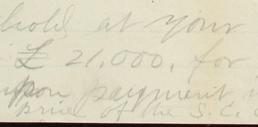 hold at your
£ 21,000, for
upon payment i
price of the S. E.